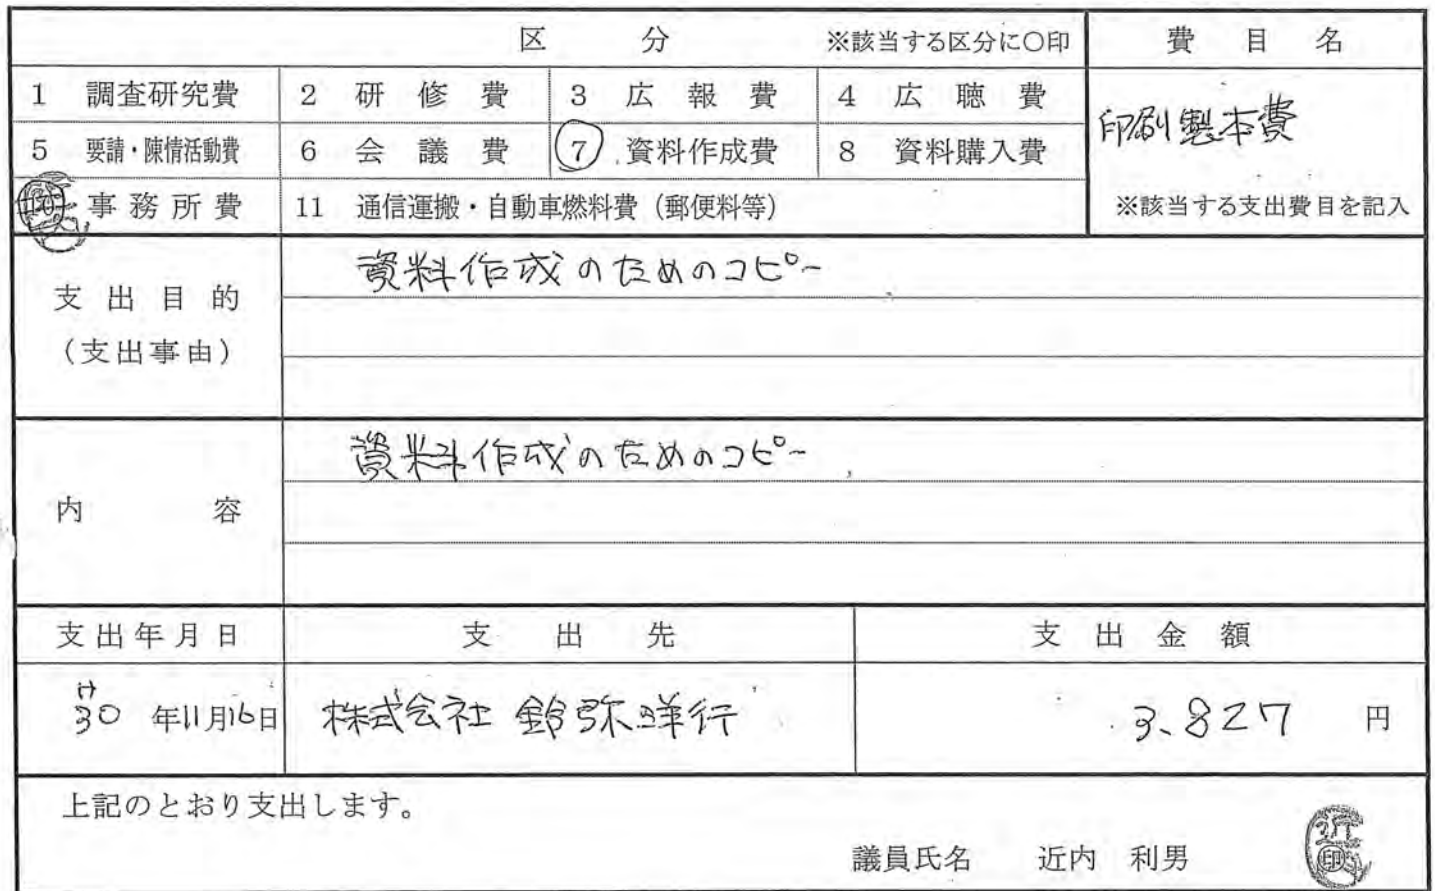 区 分 ※該当する区分に〇印 費 目 名
1 調査研究費 2 研 修 費 3 広 報 費 4 広 聴 費
印刷製本費
5 要請・陳情活動費 6 会 議 費 7 資料作成費 8 資料購入費
10 事務所費 11 通信運搬・自動車燃料費(郵便料等) ※該当する支出費目を記入
資料作成のためのコピー
支出目的
(支出事由)
資料作成のためのコピー
内 容
支出年月日 支 出 先 支 出 金 額
H30 年11月16日 株式会社 鈴弥洋行 3,827 円
上記のとおり支出します。
議員氏名 近内 利男